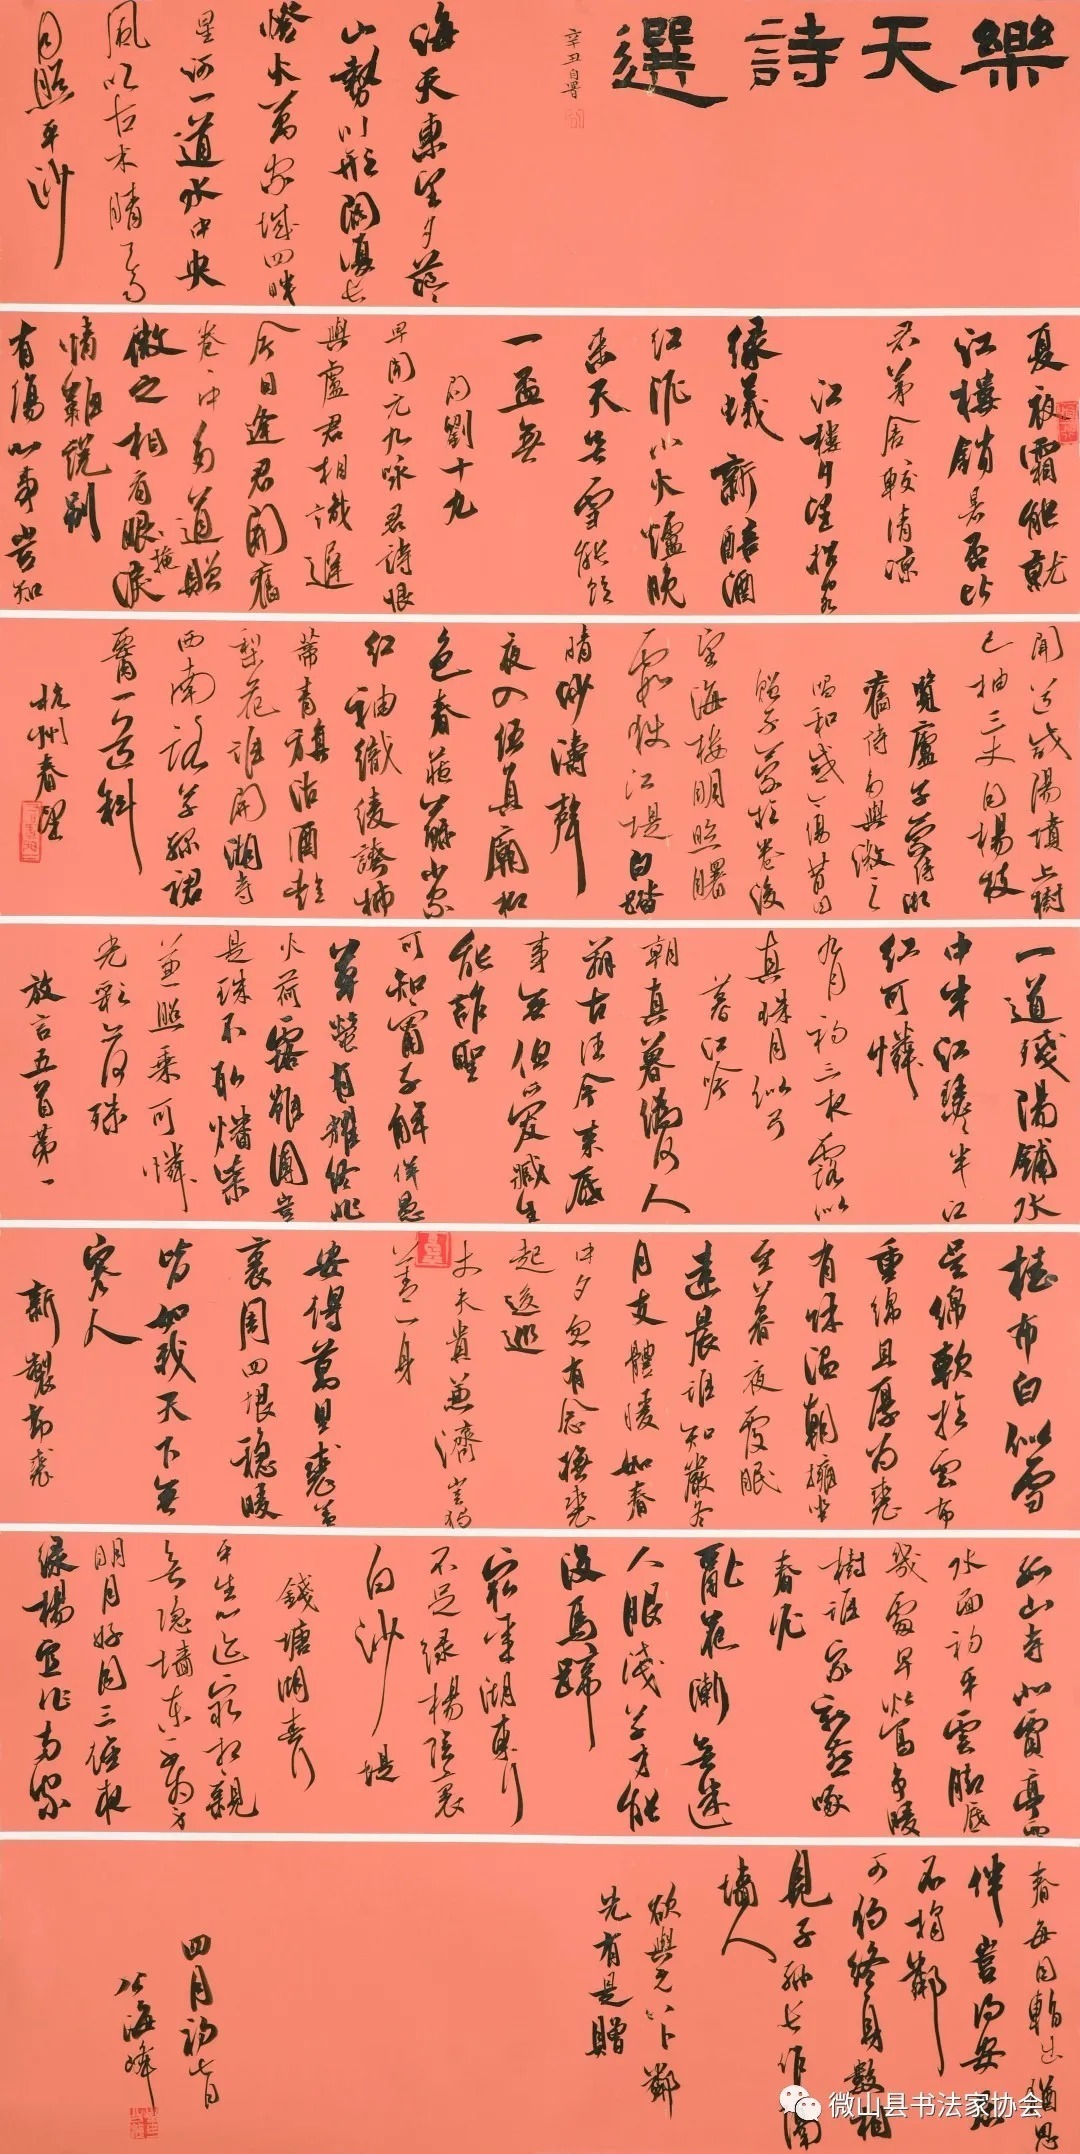 樂天詩選
辛丑自署
海天東望夕茫茫
山勢川形闊復長
燈火萬家城四畔
星河一道水中央
風吹古木晴天雨
月照平沙
夏夜霜能就
江樓銷暑否比
君茅舍較清涼
江樓夕望招客
緑蟻新醅酒
紅泥小火爐晚
來天欲雪能飲
一盃無
問劉十九
早聞元九咏君詩恨
與盧君相識遲
今日逢君開舊
卷卷中多道贈
微之相看掩眼淚
情難說別
有傷心事豈知
聞道咸陽墳上樹
已抽三丈白楊枝
覽盧子蒙侍御
舊詩多與微之
唱和感今傷昔因
贈子蒙題卷後
望海樓明照曙
霞護江堤白踏
晴沙濤聲
夜入伍員廟柳
色春藏蘇小家
紅袖織綾誇柿
蒂青旗沽酒趁
梨花誰開湖寺
西南路草綠裙
腰一道斜
杭州春望
一道殘陽鋪水
中半江瑟瑟半江
紅可憐
九月初三夜露似
真珠月似弓
暮江吟
朝真暮偽何人
辨古往今來底
事無但愛臧生
能詐聖
可知甯子解佯愚
草螢有耀終非
火荷露雖團豈
是珠不取燔柴
兼照乘可憐
光彩亦何殊
放言五首第一
桂布白似雪
吳綿軟於雲布
重綿且厚為裘
有餘溫朝擁坐
至暮夜覆眠
達晨誰知嚴冬
月支體暖如春
中夕忽有念撫裘
起逡巡
丈夫貴兼濟豈獨
善一身
安得萬里裘蓋
裹周四垠穩暖
皆如我天下無
寒人
新製布裘
孤山寺北賈亭西
水面初平雲腳底
幾處早鶯爭暖
樹誰家新燕啄
春泥
亂花漸欲迷
人眼淺草才能
沒馬蹄
最愛湖東行
不足綠楊陰裏
白沙堤
錢塘湖春行
平生心迹最相親
欲隱墻東不為身
明月好同三徑夜
緑楊宜作兩家
春每因暫出猶思
伴豈得安居
不擇鄰
可獨終身數相
見子孫長作隔
墻人
欲與元八卜鄰
先有是贈
四月初七日
海峰
微山县书法家协会